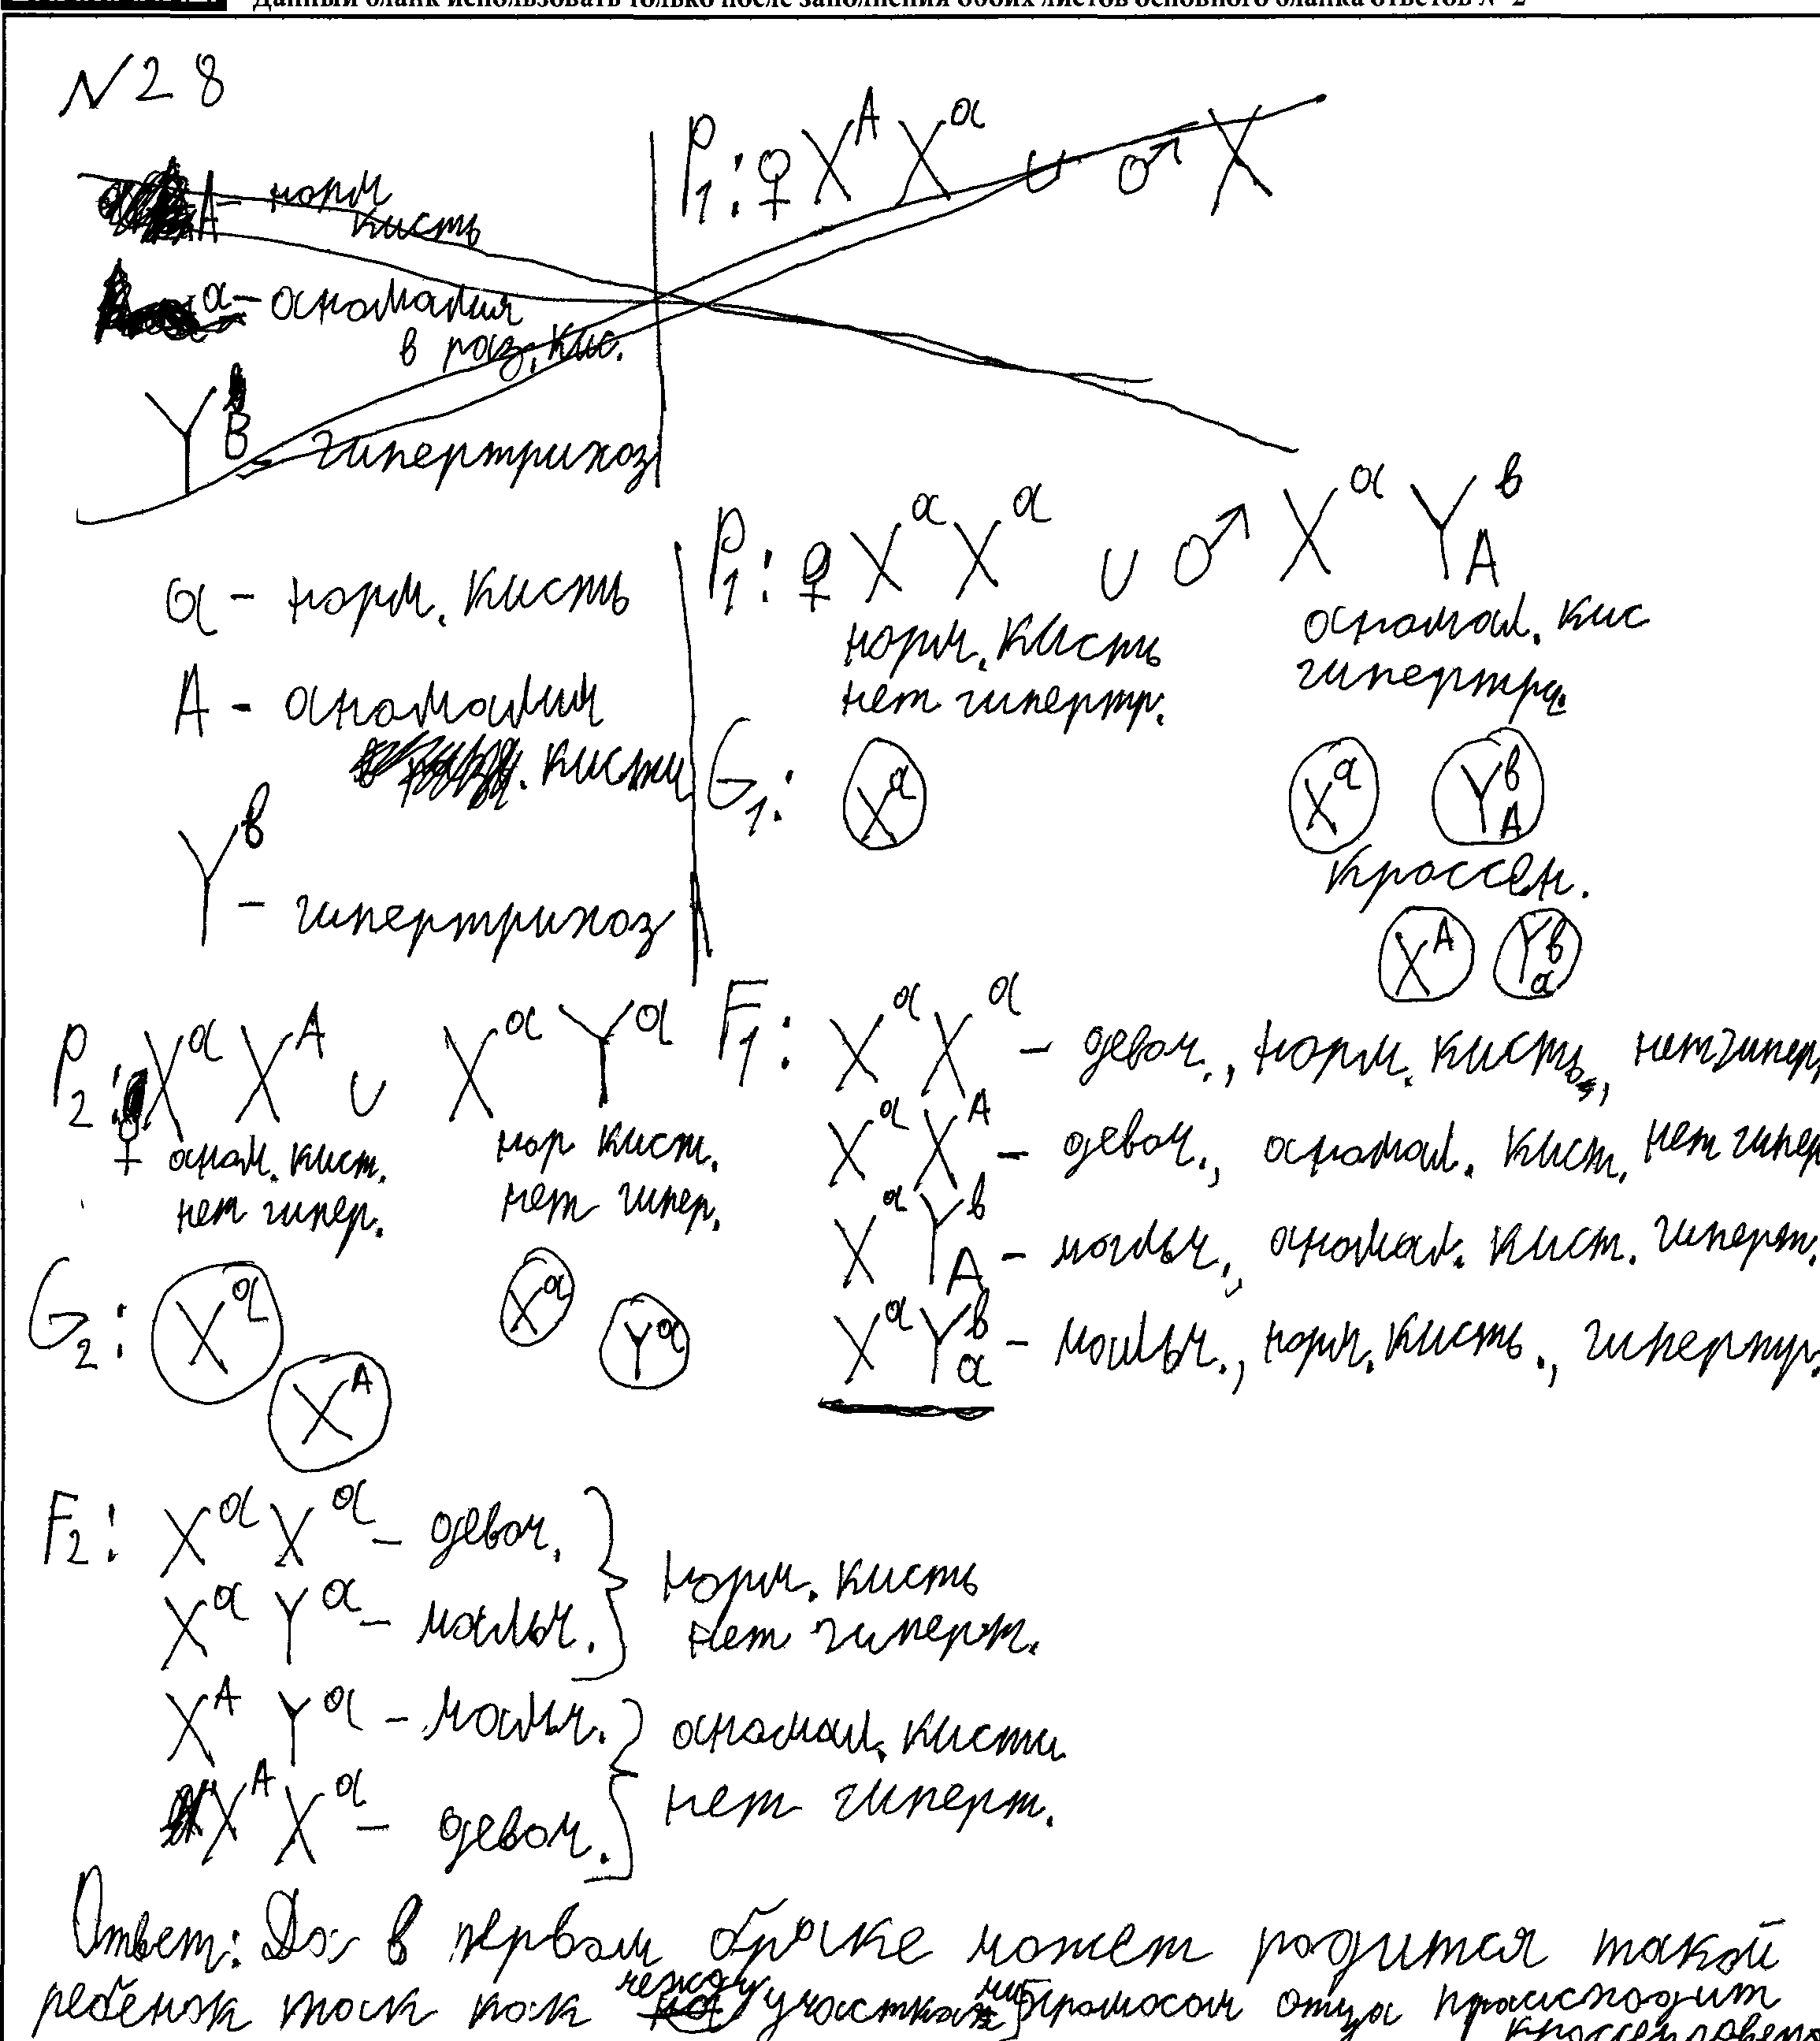 Данный бланк использовать только после заполнения обоих листов основного бланка ответов № 2
№28
A - норм кисть
a - аномалия в раз. кис.
Y^B - гипертрихоз
P1: ♀ X^A X^a ∪ ♂ X
a - норм. кисть
A - аномалия кисти
Y^b - гипертрихоз
P1: ♀ X^a X^a ∪ ♂ X^a Y^b_A
норм. кисть аномал. кис
нет гипертр. гипертри.
G1: X^a X^a Y^b_A
кроссен.
X^A Y^b_a
F1: X^a X^a - девоч., норм. кисть, нет гипер.
X^a X^A - девоч., аномал. кист. нет гипер
X^a Y^b_A - мальч., аномал. кист. гиперт.
X^a Y^b_a - мальч., норм. кисть., гипертр.
P2: ♀ X^a X^A ∪ X^a Y^a
аном. кист. нор кист.
нет гипер. нет гипер.
G2: X^a X^A X^a Y^a
F2: X^a X^a - девоч.
X^a Y^a - мальч. } норм. кисть нет гиперт.
X^A Y^a - мальч.
X^A X^a - девоч. } аномал. кисти нет гиперт.
Ответ: Да в первом браке может родится такой
ребёнок так как между участками хромосом отца происходит
кроссенговень